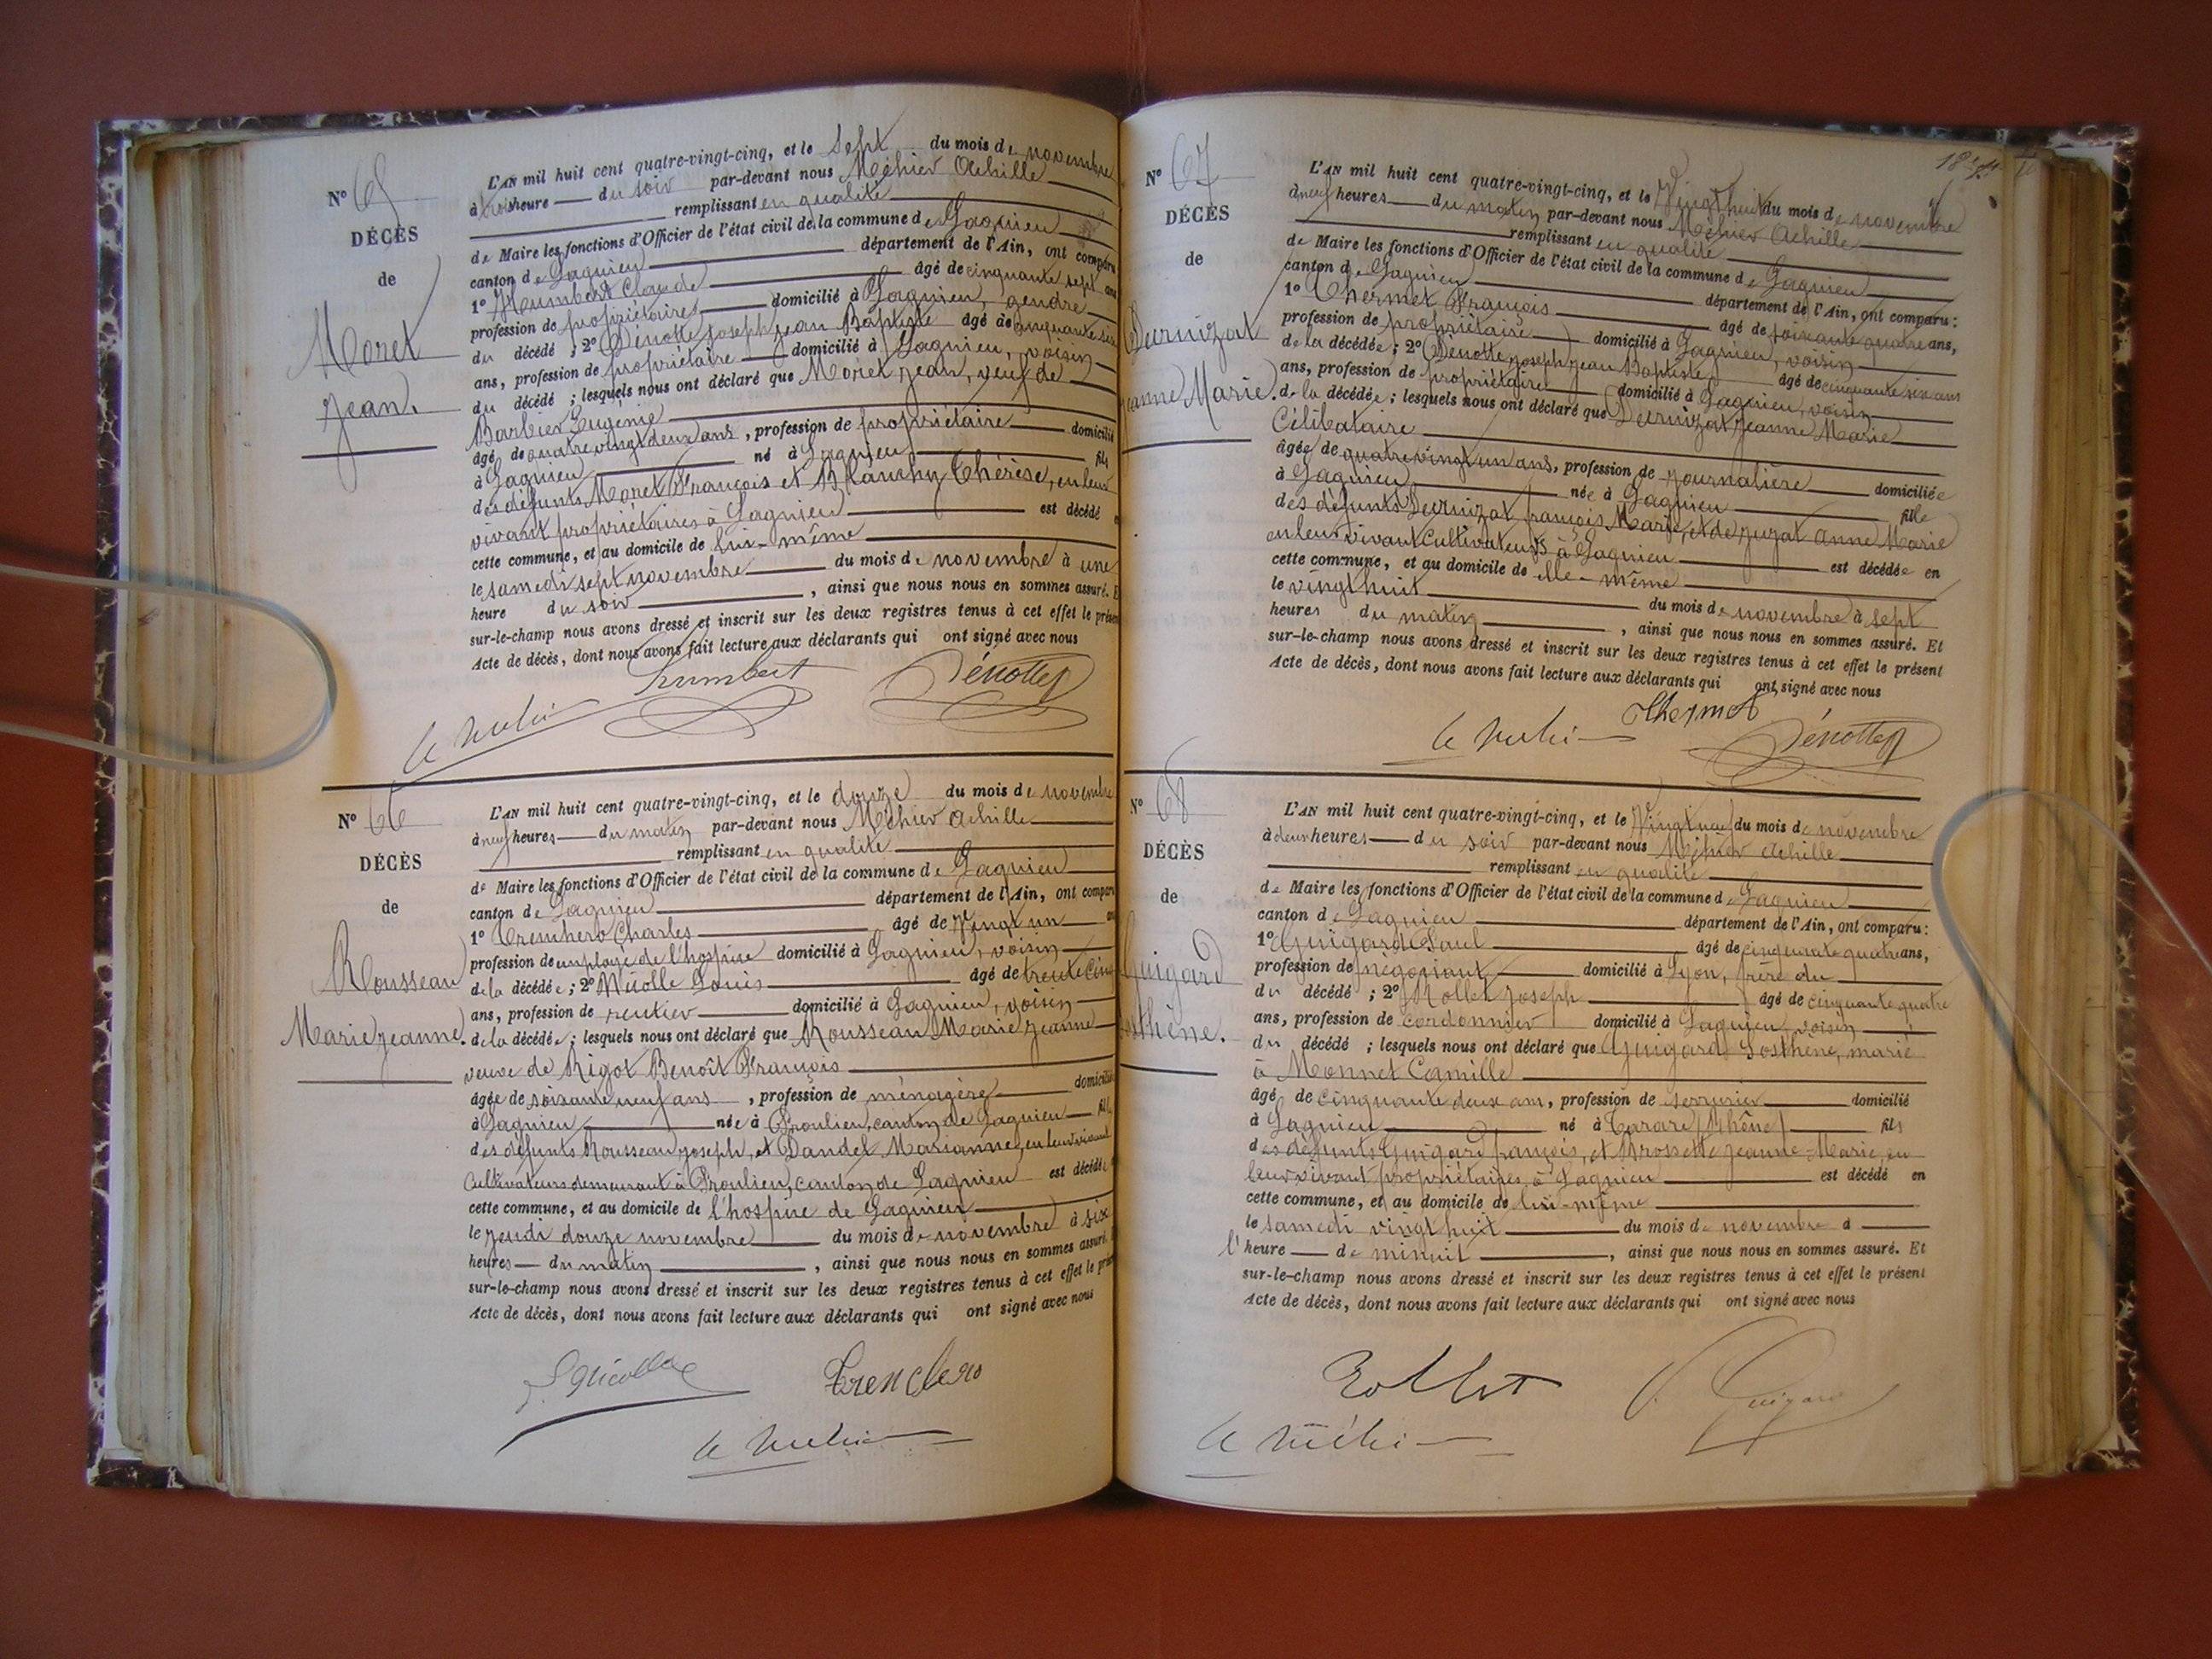 N° 65
DÉCÈS
de
Moret
Jean.
L'AN mil huit cent quatre-vingt-cinq, et le Sept du mois de novembre
à trois heure du soir par-devant nous Méhier Achille
remplissant en qualité
de Maire les fonctions d'Officier de l'état civil de la commune de Lagnieu
canton de Lagnieu département de l'Ain, ont comparu
1° Humbert Claude âgé de cinquante sept ans
profession de propriétaires domicilié à Lagnieu, gendre
du décédé ; 2° Dénotte Joseph Jean Baptiste âgé de cinquante six
ans, profession de propriétaire domicilié à Lagnieu, voisin
du décédé ; lesquels nous ont déclaré que Moret Jean, veuf de
Barbier Eugénie
âgé de quatre vingt deux ans, profession de propriétaire domicilié
à Lagnieu né à Lagnieu fils
des défunts Moret François et Blanchy Thérèse, en leur
vivant propriétaires à Lagnieu est décédé
cette commune, et au domicile de lui-même
le samedi sept novembre du mois de novembre à une
heure du soir, ainsi que nous nous en sommes assuré. E
sur-le-champ nous avons dressé et inscrit sur les deux registres tenus à cet effet le présen
Acte de décès, dont nous avons fait lecture aux déclarants qui ont signé avec nous
Humbert Dénotte
N° 66
DÉCÈS
de
Rousseau
Marie Jeanne.
L'AN mil huit cent quatre-vingt-cinq, et le douze du mois de novembre
à neuf heures du matin par-devant nous Méhier Achille
remplissant en qualité
de Maire les fonctions d'Officier de l'état civil de la commune de Lagnieu
canton de Lagnieu département de l'Ain, ont compar
1° Charles âgé de vingt un
profession de employé de l'hospice domicilié à Lagnieu, voisin
de la décédée ; 2° Louis âgé de trente cinq
ans, profession de rentier domicilié à Lagnieu, voisin
de la décédée ; lesquels nous ont déclaré que Rousseau Marie Jeanne
veuve de Rigot Benoît François
âgée de soixante neuf ans, profession de ménagère domicilié
à Lagnieu née à Proulieu, canton de Lagnieu fille
des défunts Rousseau Joseph, et Dandel Marianne, en leur vivant
Cultivateurs demeurant à Proulieu, canton de Lagnieu est décédée
cette commune, et au domicile de l'hospice de Lagnieu
le jeudi douze novembre du mois de novembre à six
heures du matin, ainsi que nous nous en sommes assuré.
sur-le-champ nous avons dressé et inscrit sur les deux registres tenus à cet effet le prés
Acte de décès, dont nous avons fait lecture aux déclarants qui ont signé avec nous
N° 67
DÉCÈS
de
Durnizat
Jeanne Marie.
L'AN mil huit cent quatre-vingt-cinq, et le Vingt huit du mois de novembre
à neuf heures du matin par-devant nous Méhier Achille
remplissant en qualité
de Maire les fonctions d'Officier de l'état civil de la commune de Lagnieu
canton de Lagnieu département de l'Ain, ont comparu :
1° Thermet François âgé de soixante quatre ans,
profession de propriétaire domicilié à Lagnieu, voisin
de la décédée ; 2° Dénotte Joseph Jean Baptiste âgé de cinquante six ans
ans, profession de propriétaire domicilié à Lagnieu, voisin
de la décédée ; lesquels nous ont déclaré que Durnizat Jeanne Marie
Célibataire
âgée de quatre vingt un ans, profession de journalière domiciliée
à Lagnieu née à Lagnieu fille
des défunts Durnizat François Marie, et de Juzat Anne Marie
en leur vivant Cultivateurs à Lagnieu est décédée en
cette commune, et au domicile de elle-même
le vingt huit du mois de novembre à sept
heures du matin, ainsi que nous nous en sommes assuré. Et
sur-le-champ nous avons dressé et inscrit sur les deux registres tenus à cet effet le présent
Acte de décès, dont nous avons fait lecture aux déclarants qui ont signé avec nous
Thermet
Dénotte
N° 68
DÉCÈS
de
Guigard
Sosthène.
L'AN mil huit cent quatre-vingt-cinq, et le Vingt neuf du mois de novembre
à deux heures du soir par-devant nous Méhier Achille
remplissant en qualité
de Maire les fonctions d'Officier de l'état civil de la commune de Lagnieu
canton de Lagnieu département de l'Ain, ont comparu :
1° Guigard Paul âgé de cinquante quatre ans,
profession de négociant domicilié à Lyon, frère du
du décédé ; 2° Rollet Joseph âgé de cinquante quatre
ans, profession de cordonnier domicilié à Lagnieu, voisin
du décédé ; lesquels nous ont déclaré que Guigard Sosthène, marié
à Monnet Camille
âgé de cinquante deux ans, profession de serrurier domicilié
à Lagnieu né à Tarare (Rhône) fils
des défunts Guigard François, et Brossette Jeanne-Marie, en
leur vivant propriétaires à Lagnieu est décédé en
cette commune, et au domicile de lui-même
le samedi vingt huit du mois de novembre à
l'heure de minuit, ainsi que nous nous en sommes assuré. Et
sur-le-champ nous avons dressé et inscrit sur les deux registres tenus à cet effet le présent
Acte de décès, dont nous avons fait lecture aux déclarants qui ont signé avec nous
Rollet Guigard